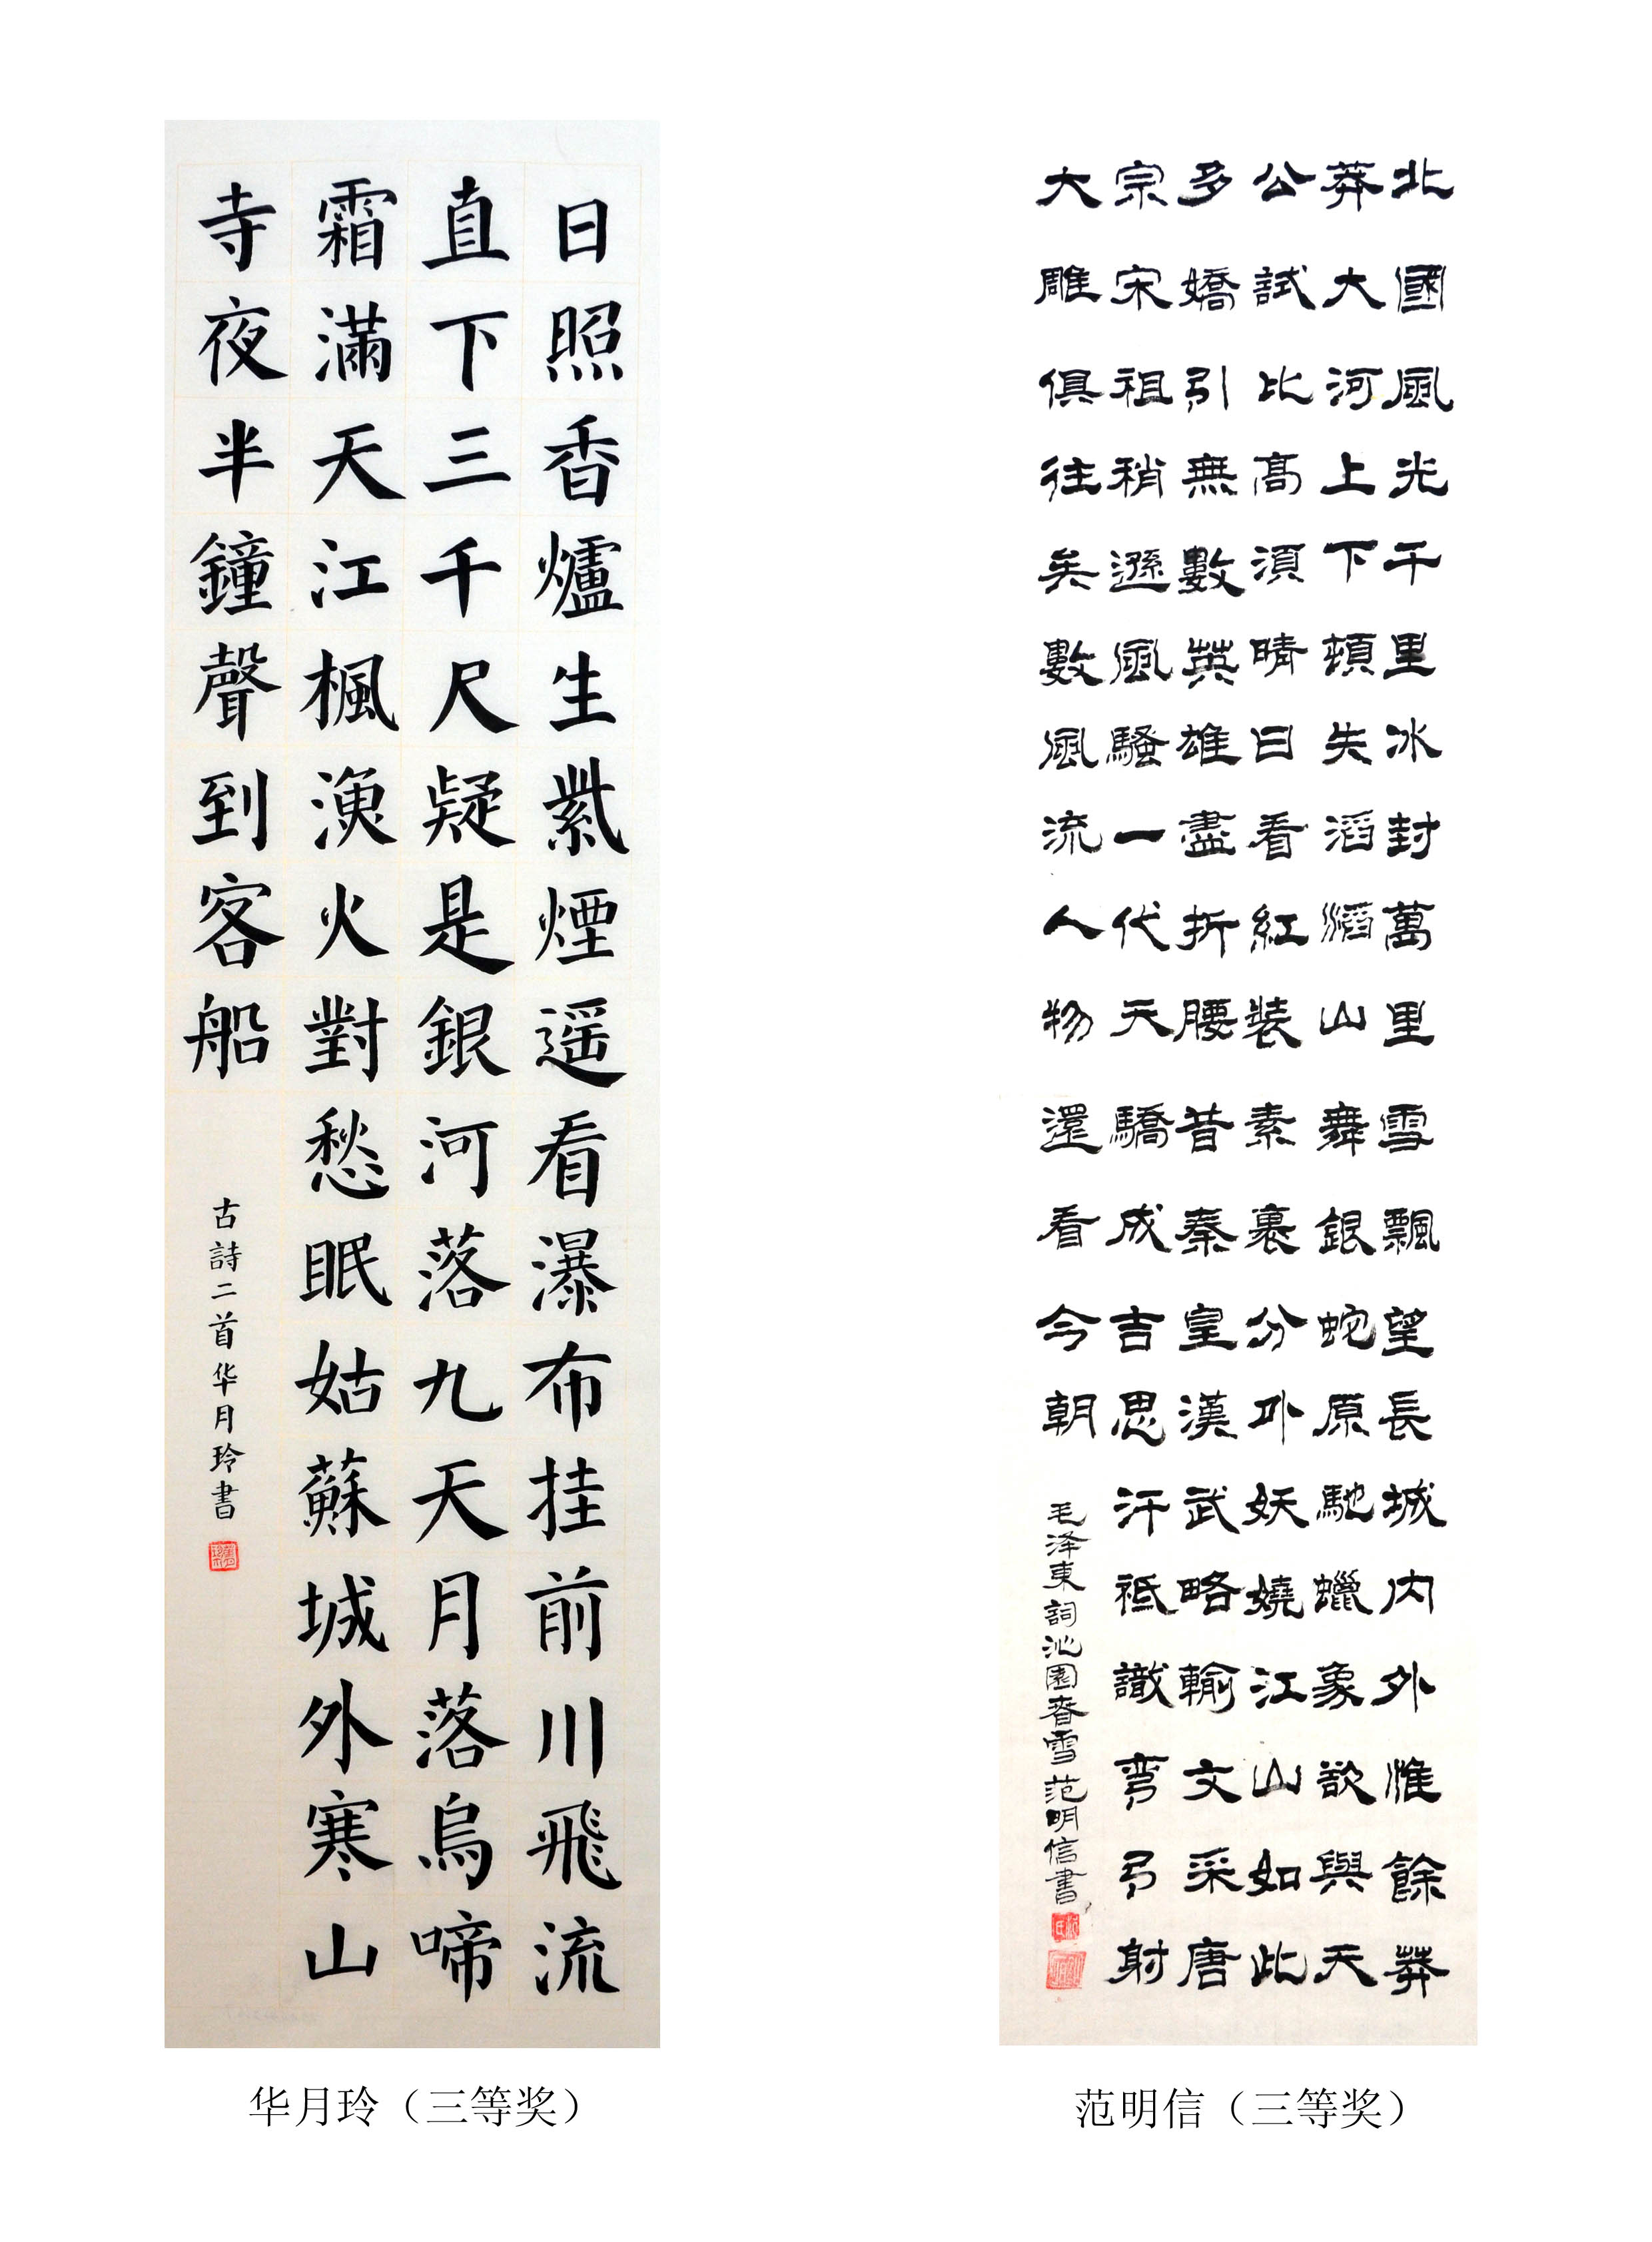 日照香爐生紫煙遥看瀑布挂前川飛流
直下三千尺疑是銀河落九天月落烏啼
霜滿天江楓漁火對愁眠姑蘇城外寒山
寺夜半鐘聲到客船
古詩二首华月玲書
华月玲（三等奖）
北國風光千里冰封萬里雪飄望長城内外惟餘莽
莽大河上下頓失滔滔山舞銀蛇原馳蠟象欲與天
公試比高須晴日看紅裝素裹分外妖嬈江山如此
多嬌引無數英雄盡折腰昔秦皇漢武略輸文采唐
宗宋祖稍遜風騷一代天驕成吉思汗祗識彎弓射
大雕俱往矣數風流人物還看今朝
毛泽東詞沁園春雪范明信書
范明信（三等奖）